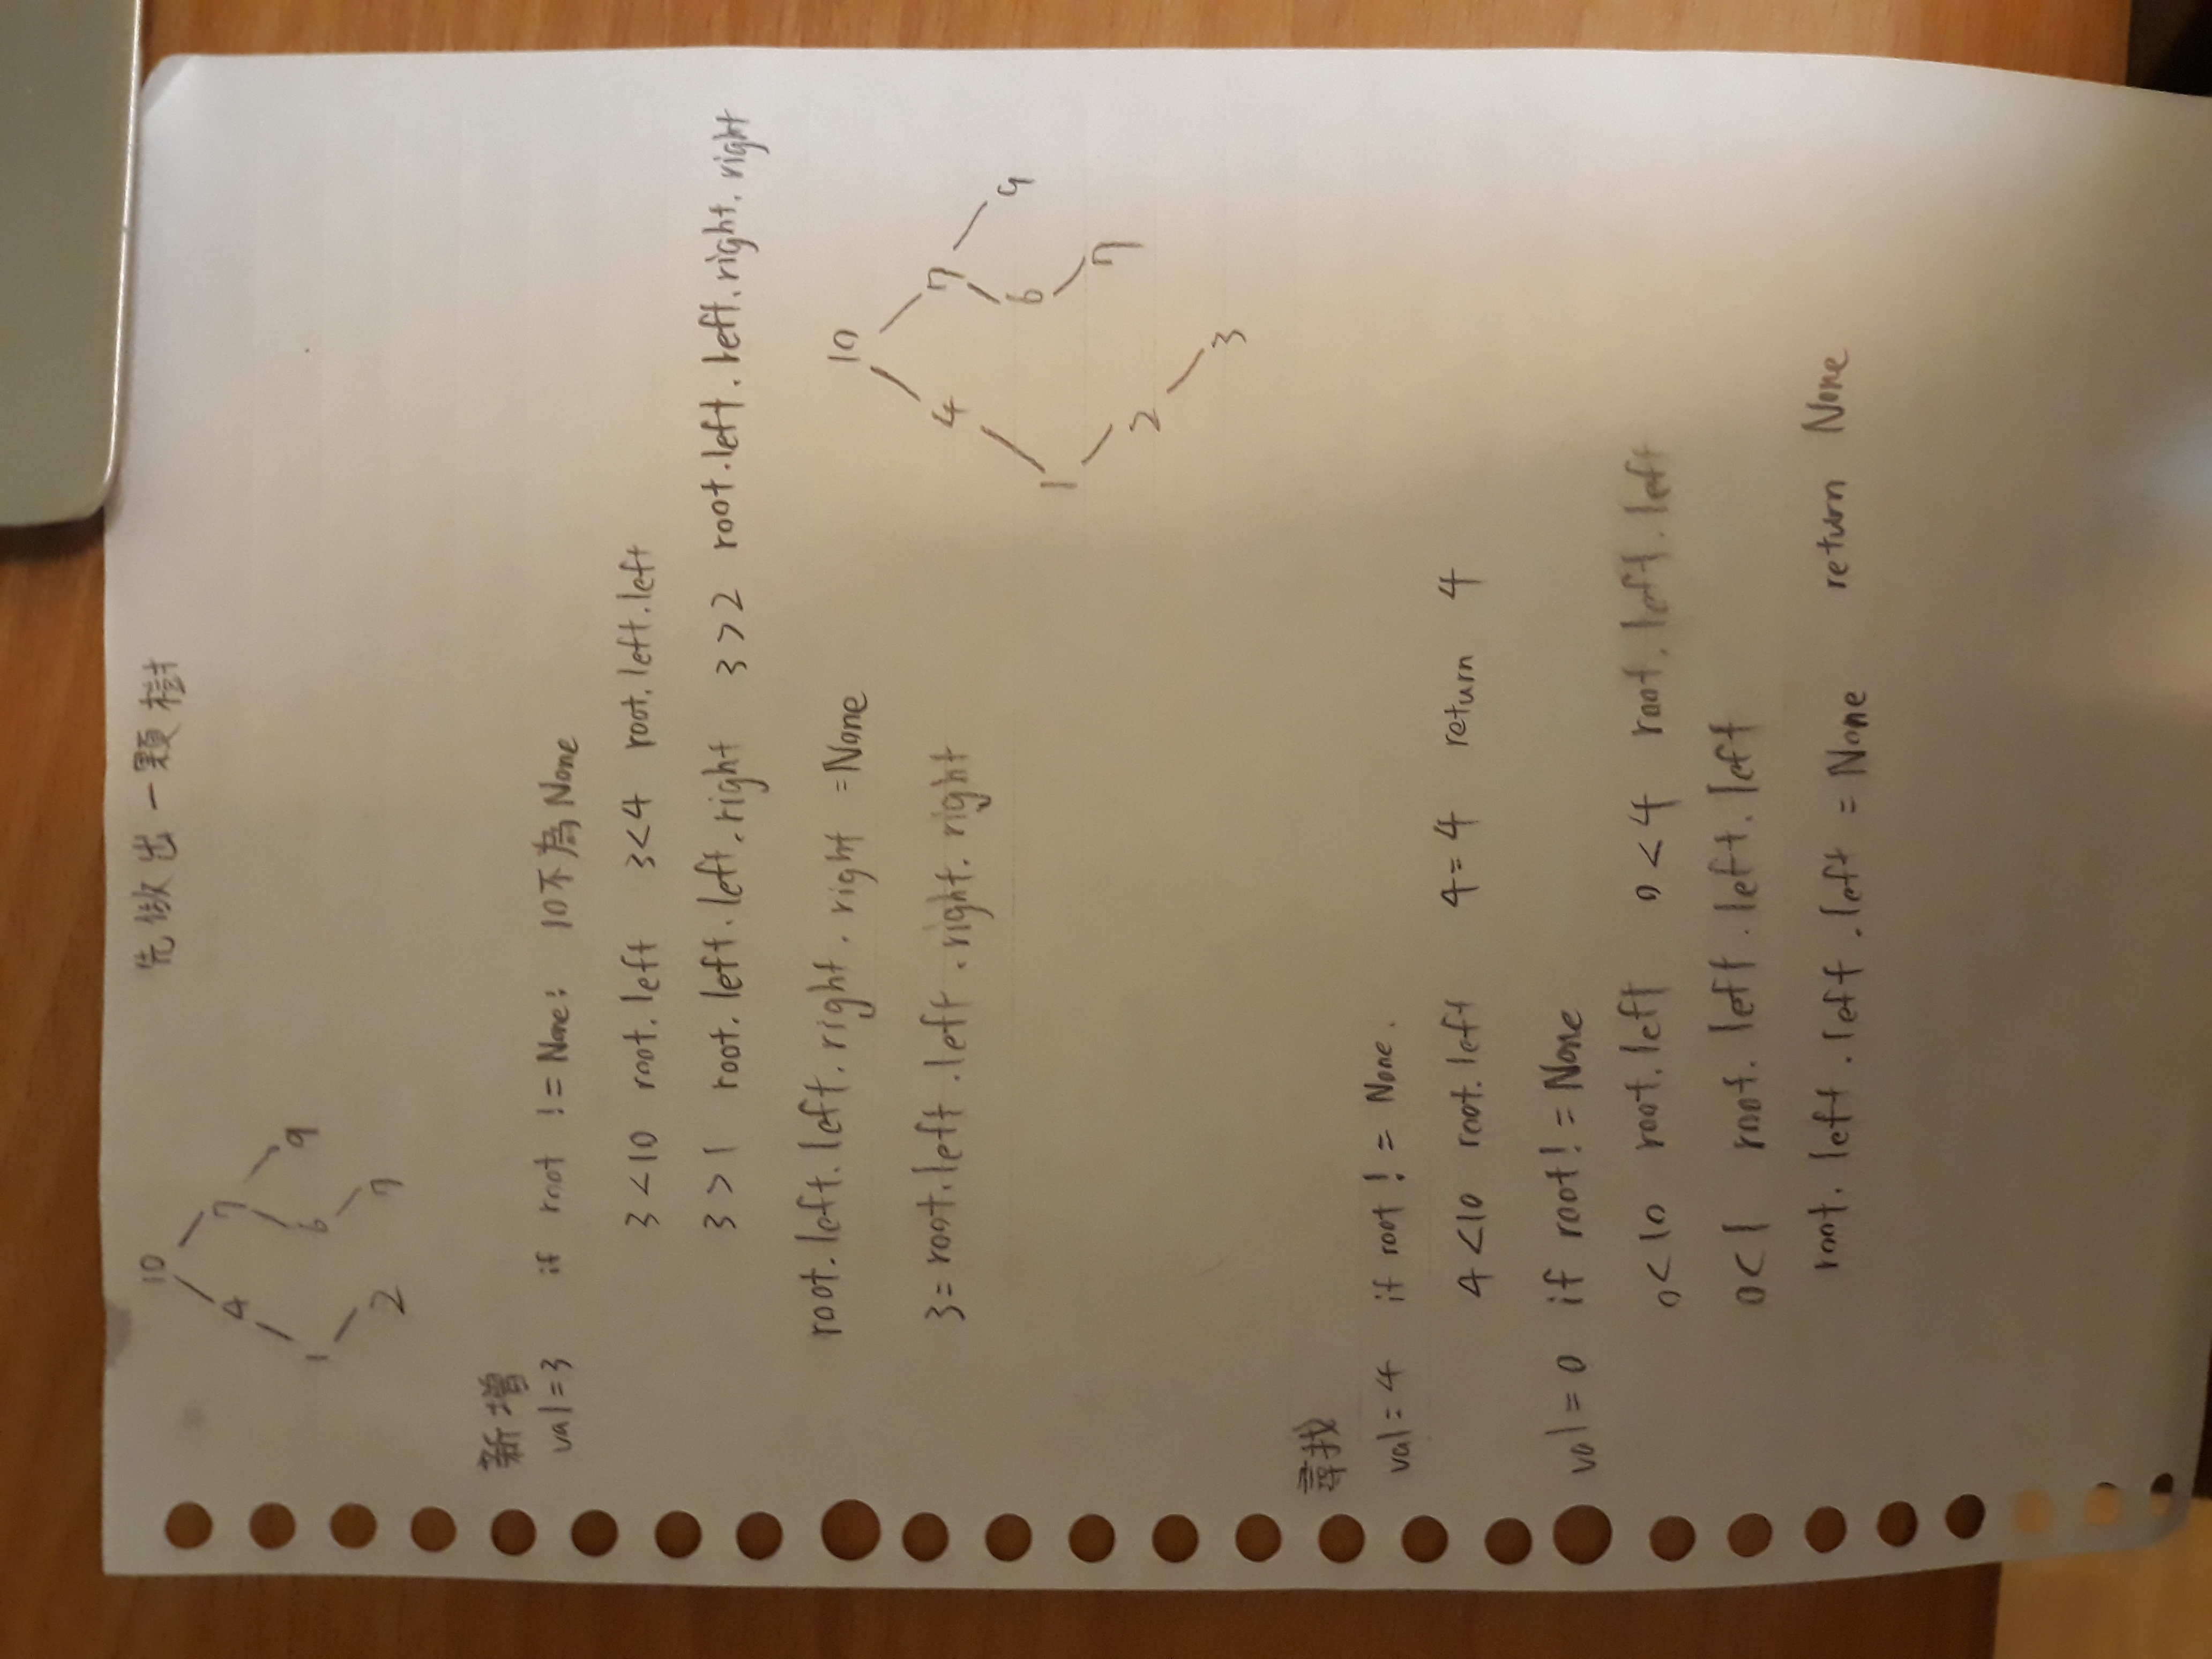 先做出一顆樹
10
4 7
1 6 9
2 7
新增
val=3 if root != None: 10不為None
3<10 root.left 3<4 root.left.left
3>1 root.left.left.right 3>2 root.left.left.right.right
root.left.left.right.right =None
3=root.left.left.right.right
10
4 7
1 6 9
2 7
3
尋找
val=4 if root != None.
4<10 root.left 4=4 return 4
val=0 if root!=None
0<10 root.left 0<4 root.left.left
0<1 root.left.left.left
root.left.left.left = None return None